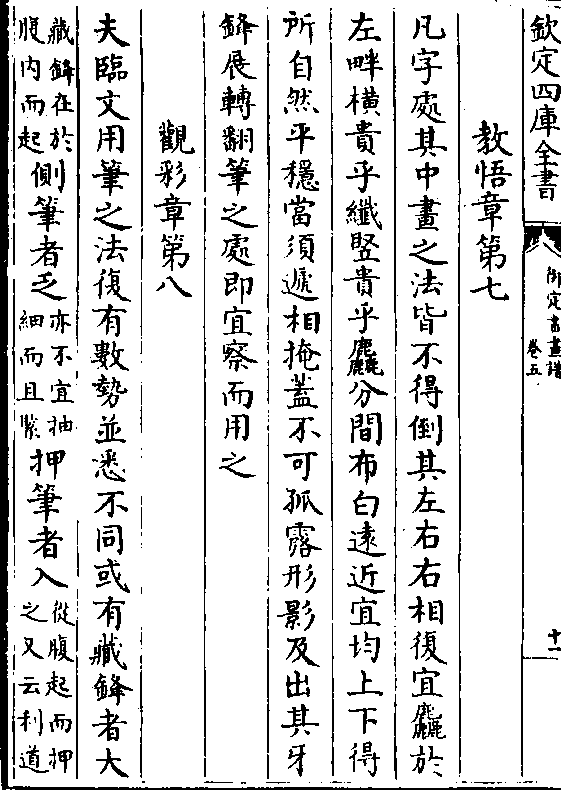 欽定四庫全書
御定書畫譜
卷五
十一
教悟章第七
凡字處其中畫之法皆不得倒其左右右相復宜麤於
左畔橫貴乎纖豎貴乎麤分間布白遠近宜均上下得
所自然平穩當須遞相掩蓋不可孤露形影及出其牙
鋒展轉翻筆之處即宜察而用之
觀彩章第八
夫臨文用筆之法復有數勢並悉不同或有藏鋒者大
藏鋒在於
腹内而起
側筆者乏
亦不宜抽
細而且緊
押筆者入
從腹起而押
之又云利道